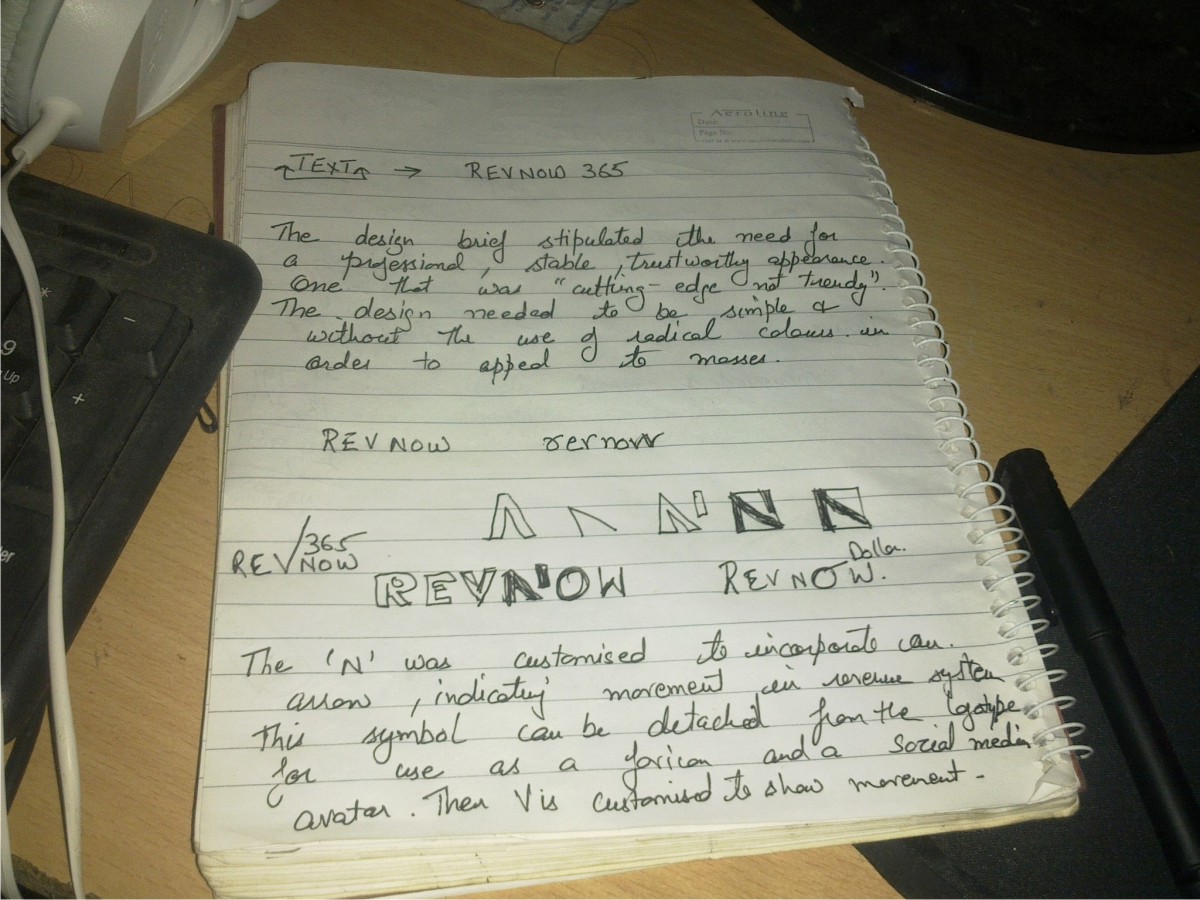 Aeroline
Date:
Page No:
TEXT → REVNOW 365
The design brief stipulated the need for
a professional, stable, trustworthy appearance.
One that was "cutting-edge not trendy".
The design needed to be simple &
without the use of radical colours in
order to appeal to masses.
REVNOW revnow
REV/NOW 365
REVNOW
REVNOW.
Dolla.
The 'N' was customised to incorporate an
arrow, indicating movement in revenue system
This symbol can be detached from the logotype
for use as a favicon and a social media
avatar. Then V is customised to show movement-
9
Up
*
-
+